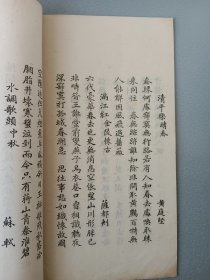 清平樂晚春 黃庭堅
春歸何處寂寞無行路若有人知春去處喚取歸
來同住 春無蹤跡誰知除非問取黃鸝百囀無
人能解因風飛過薔薇
滿江紅金陵懷古 薩都剌
六代豪華春去也更無消息空悵望山川形勝已
非疇昔王謝堂前雙燕子烏衣巷口曾相識聽夜
深寂寞打孤城春潮急 思往事愁如織懷故國
空陳跡但荒煙衰草亂鴉斜日玉樹歌殘秋露冷
胭脂井壞寒螿泣到而今只有蔣山青秦淮碧
水調歌頭中秋 蘇軾